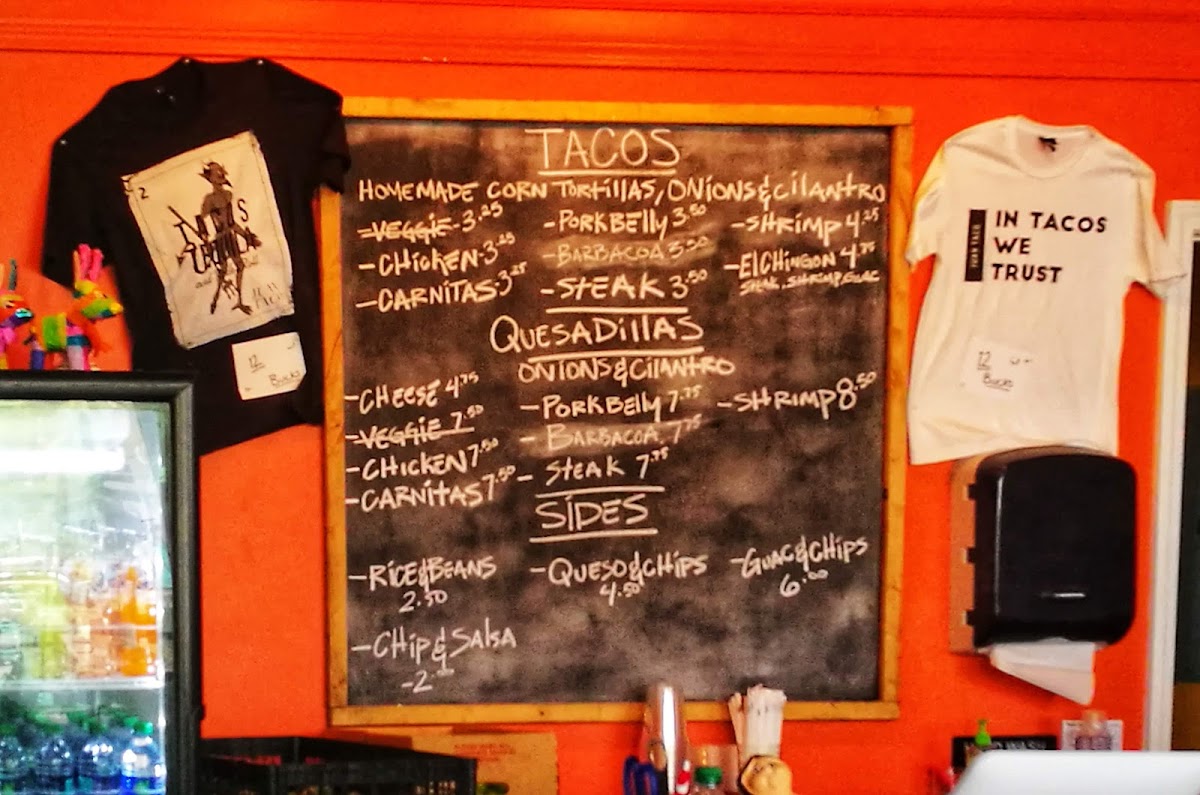 TACOS
HOMEMADE CORN TORTILLAS, ONIONS & CILANTRO
-VEGGIE-3.25
-CHICKEN-3.25
-CARNITAS-3.25
-PORKBELLY 3.50
-BARBACOA 3.50
-STEAK 3.50
-SHRIMP 4.25
-ElCHINGON 4.75
STEAK, SHRIMP, GUAC
QUESADILLAS
ONIONS & CILANTRO
-CHEESE 4.75
-VEGGIE 7.50
-CHICKEN 7.50
-CARNITAS 7.50
-PORKBELLY 7.75
-BARBACOA 7.75
-STEAK 7.75
-SHRIMP 8.50
SIDES
-RICE & BEANS
2.50
-QUESO & CHIPS
4.50
-GUAC & CHIPS
6.00
-CHIP & SALSA
-2.00
2
12
Bucks
IN TACOS
WE
TRUST
12
Bucks